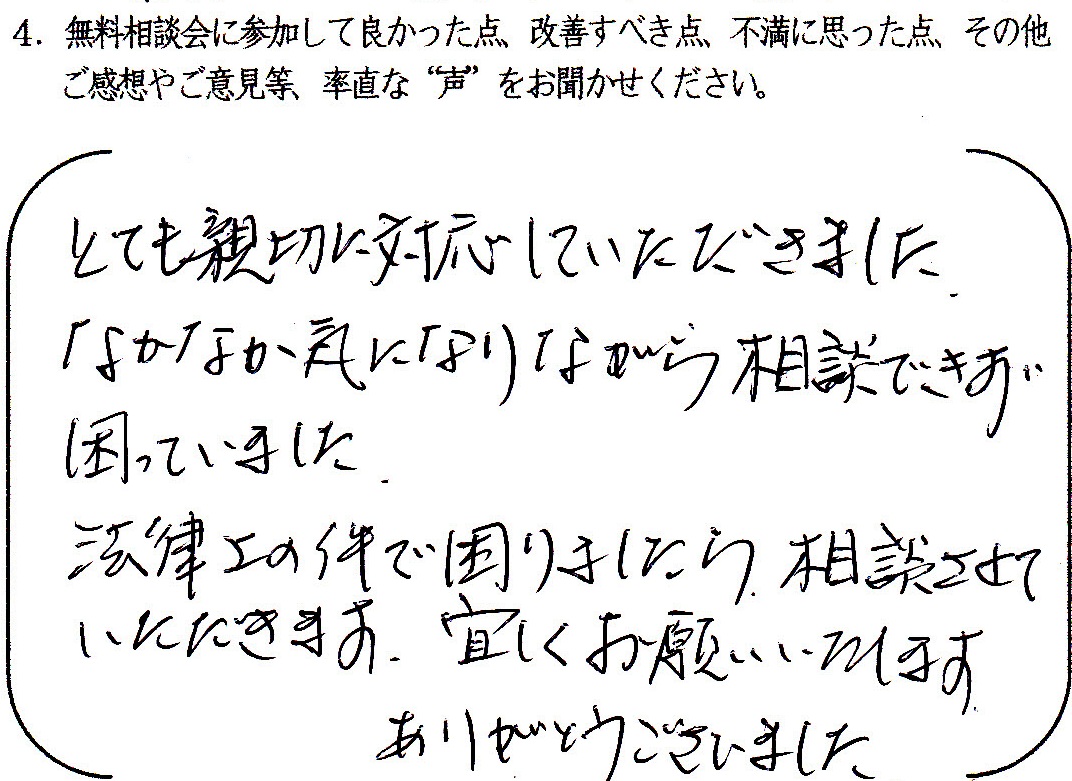 4. 無料相談会に参加して良かった点、改善すべき点、不満に思った点、その他
ご感想やご意見等、率直な“声”をお聞かせください。
とても親切に対応していただきました.
なかなか気になりながら相談できず
困っていました.
法律上の件で困りましたら、相談させて
いただきます. 宜しくお願いいたします.
ありがとうございました